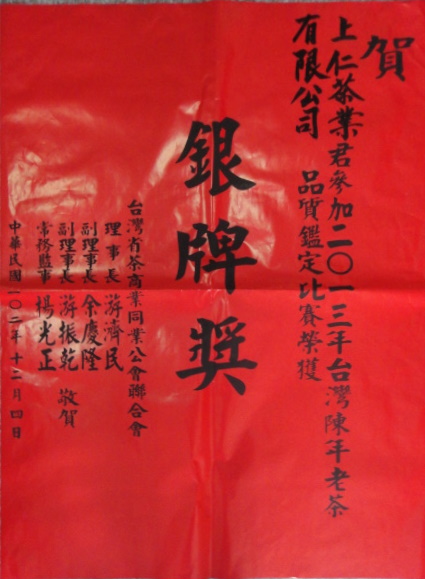 賀
上仁茶業君參加二〇一三年台灣陳年老茶
有限公司 品質鑑定比賽榮獲
銀牌獎
台灣省茶商業同業公會聯合會
理事長 游濟民
副理事長 余慶隆
副理事長 游振乾 敬賀
常務監事 楊光正
中華民國一〇二年十二月四日